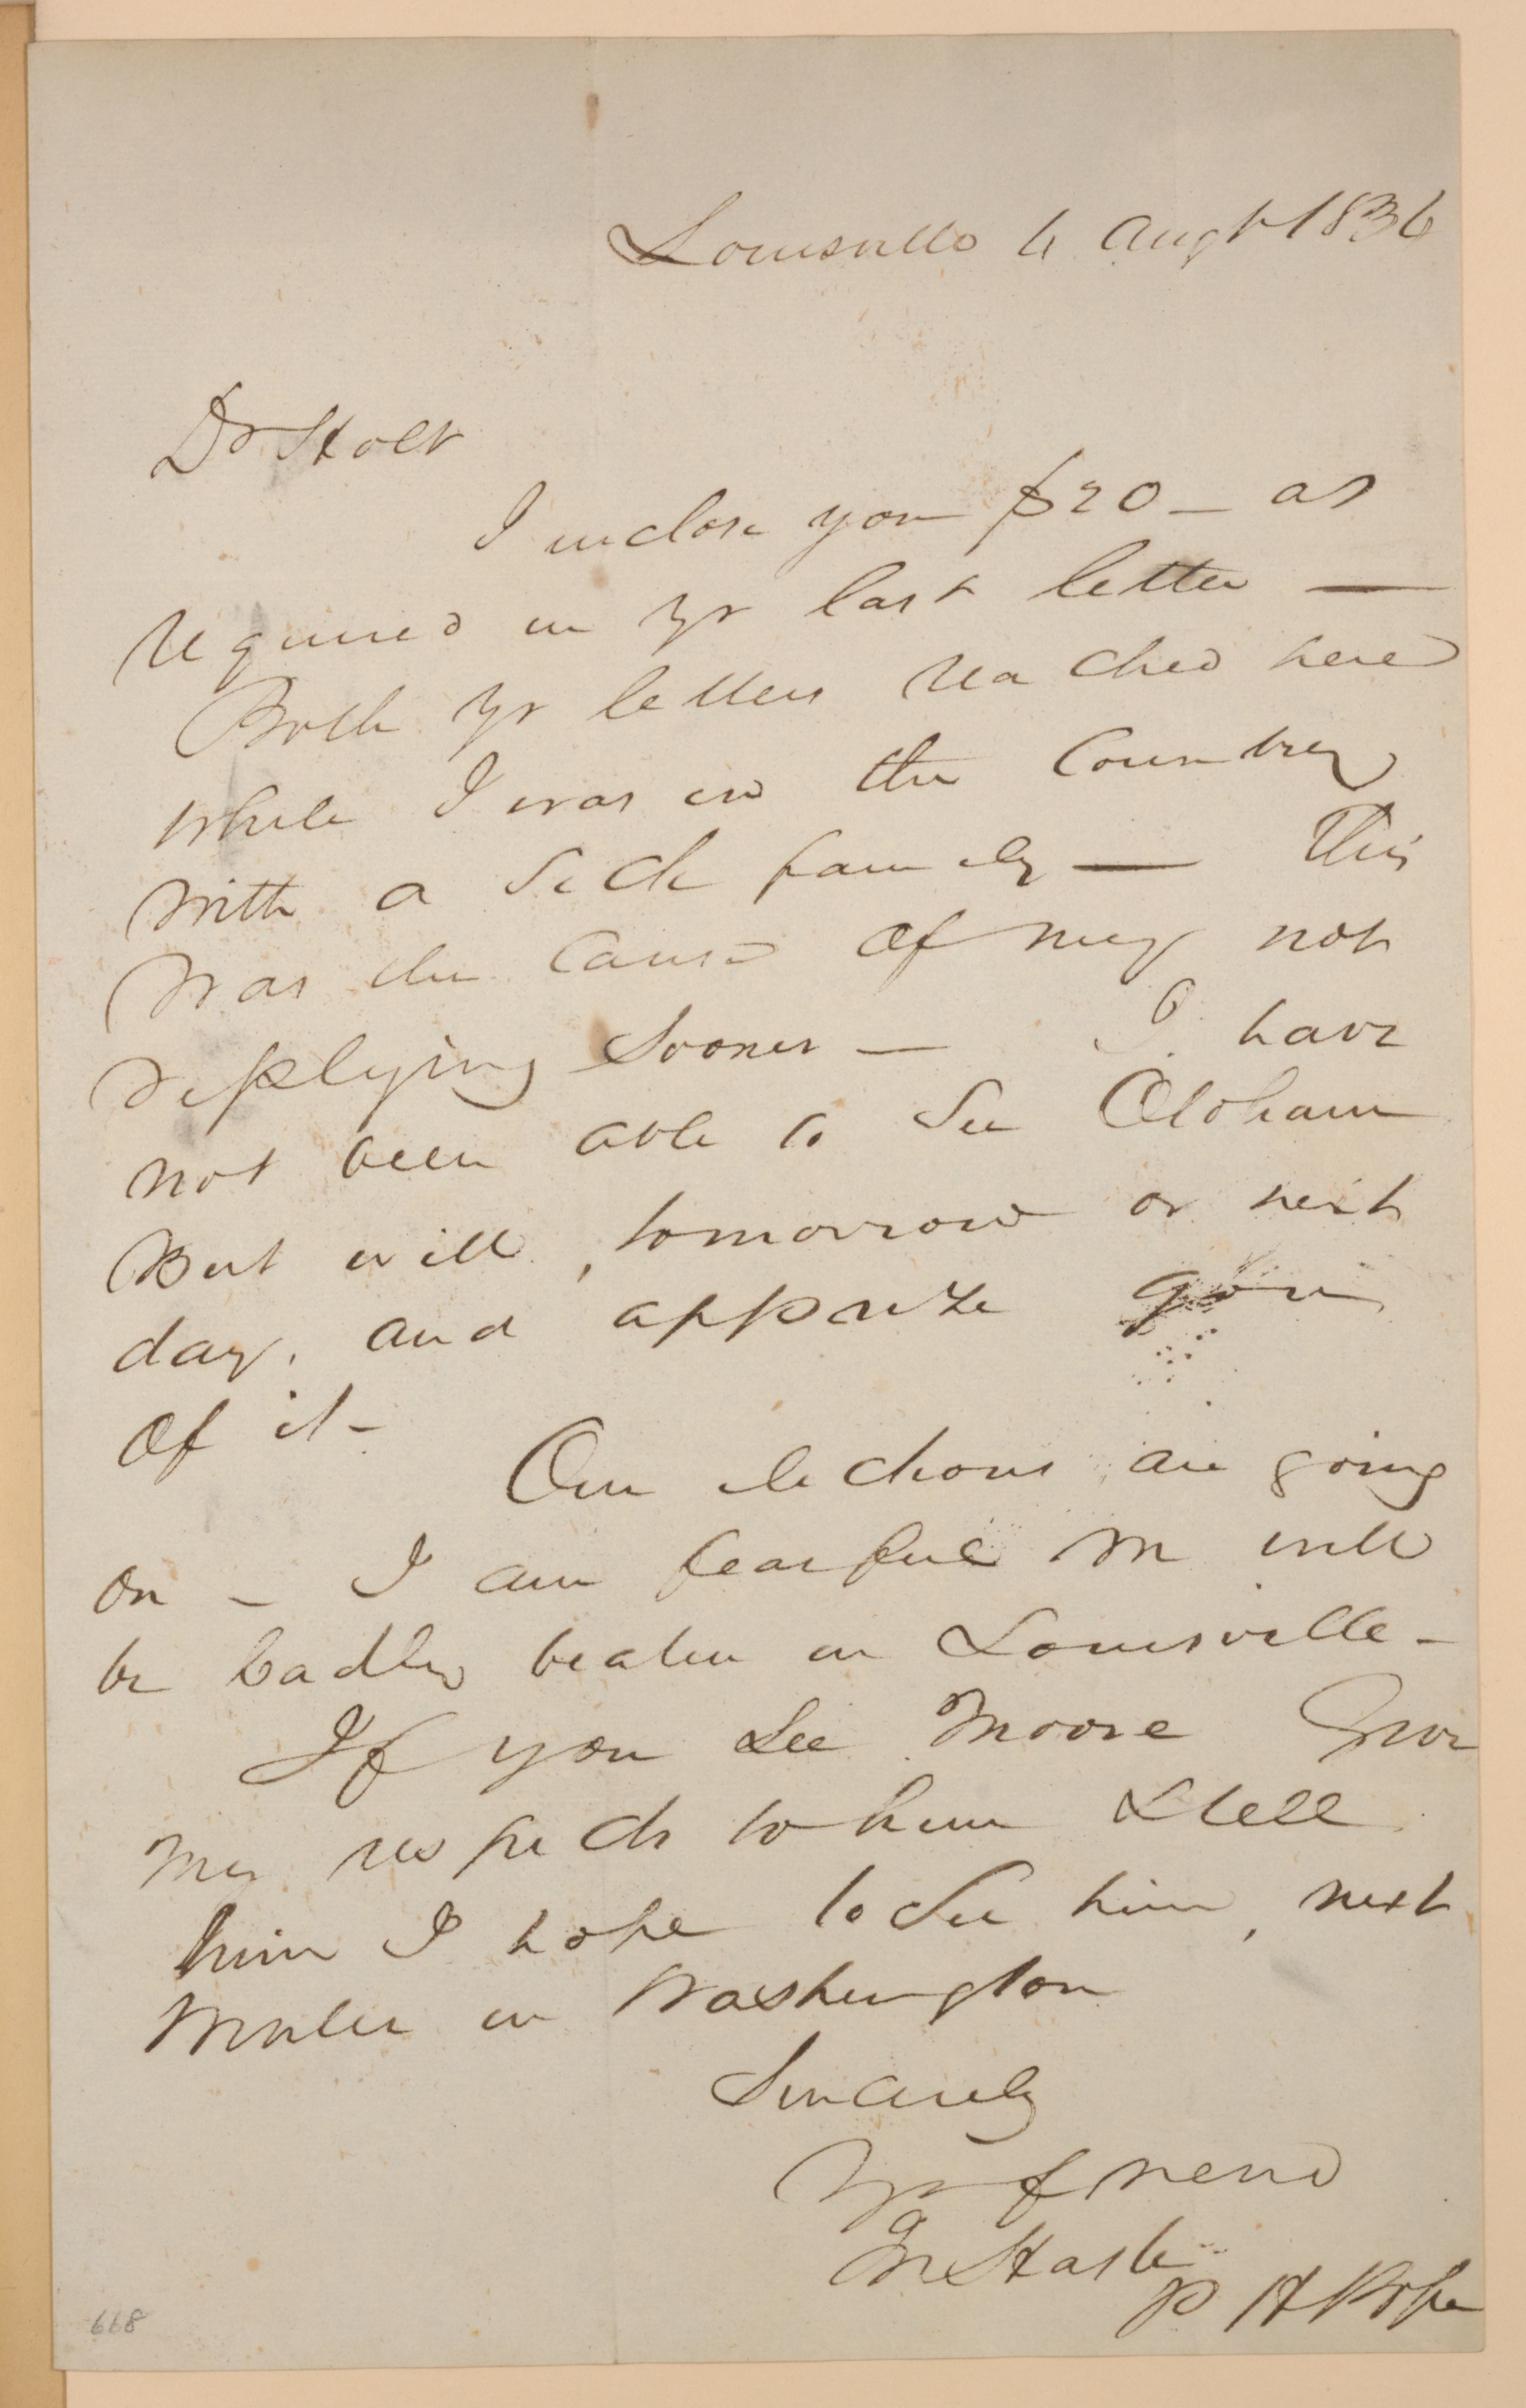 Louisville 4 Augt 1836
Dr Holt
I inclose you $20 — as
required in yr last letter —
Both yr letters reached here
while I was in the Country
with a sick family — This
was the cause of my not
replying sooner — I have
not been able to see Oldham
But will, tomorrow or next
day, and apprize you
of it —
Our elections are going
on — I am fearful we will
be badly beaten in Louisville —
If you see Moore Give
my respects to him & tell
him I hope to see him, next
Winter in Washington
Sincerely
Yr friend
In Haste
P H Pope
668